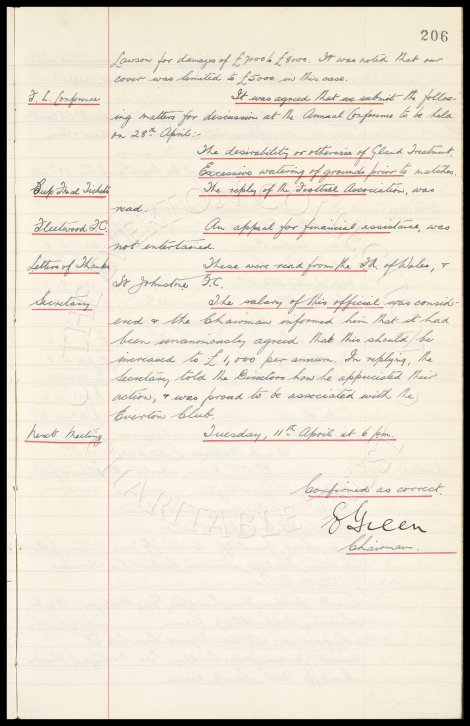 206
Lawson for damages of £7000 to £8000. It was noted that our
cover was limited to £5000 in this case.
F. L. Conference
It was agreed that we submit the follow-
ing matters for discussion at the Annual Conference to be held
on 28th April:-
The desirability or otherwise of Gland Treatment.
Excessive watering of grounds prior to matches.
Cup Final Tickets
The reply of the Football Association, was
read.
Fleetwood F.C.
An appeal for financial assistance, was
not entertained.
Letters of Thanks
These were read from the F.A. of Wales, &
St Johnstone F.C.
Secretary
The salary of this official was consid-
ered & the Chairman informed him that it had
been unanimously agreed that this should be
increased to £1,000 per annum. In replying, the
Secretary told the Directors how he appreciated their
action, & was proud to be associated with the
Everton Club.
Next Meeting
Tuesday, 11th April at 6 pm.
Confirmed as correct.
E Green
Chairman.
CHARITABLE